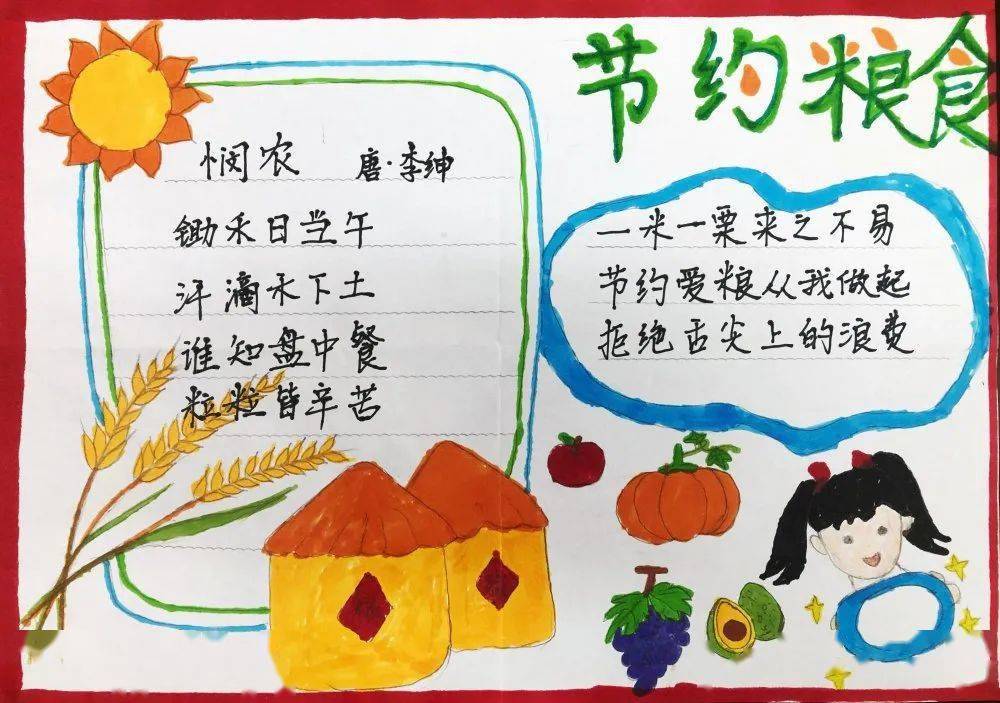 节约粮食
悯农 唐·李绅
锄禾日当午
汗滴禾下土
谁知盘中餐
粒粒皆辛苦
一米一粟来之不易
节约爱粮从我做起
拒绝舌尖上的浪费